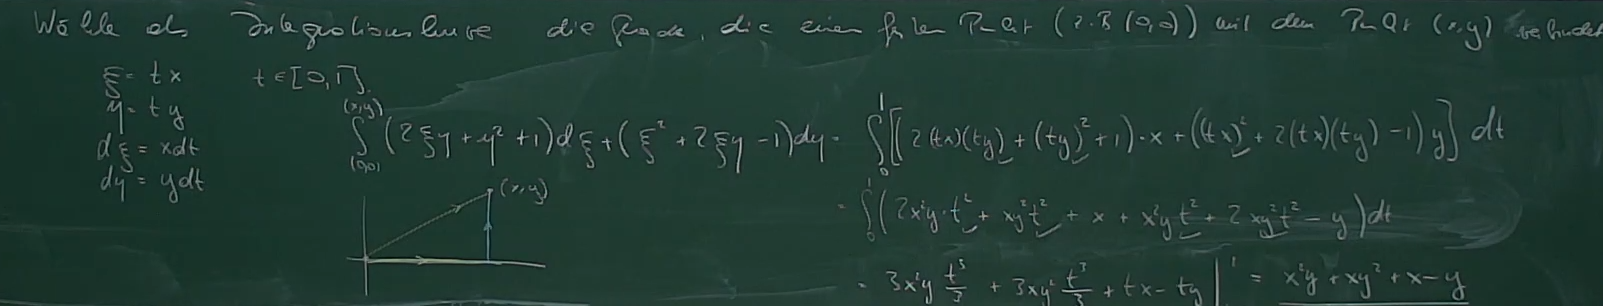 Wähle als Integrationskurve die Gerade, die einen festen Punkt (z.B (0,0)) mit dem Punkt (x,y) verbindet
ξ = tx t ∈ [0,1].
η = ty
dξ = xdt
dη = ydt
∫_{(0,0)}^{(x,y)} (2ξη + η² + 1)dξ + (ξ² + 2ξη - 1)dη = ∫_0^1 [(2(tx)(ty) + (ty)² + 1)·x + ((tx)² + 2(tx)(ty) - 1) y] dt
(x,y)
= ∫_0^1 (2x²y·t² + xy²t² + x + x²y t² + 2xy²t² - y) dt
= 3x²y t³/3 + 3xy² t³/3 + tx - ty |^1 = x²y + xy² + x - y